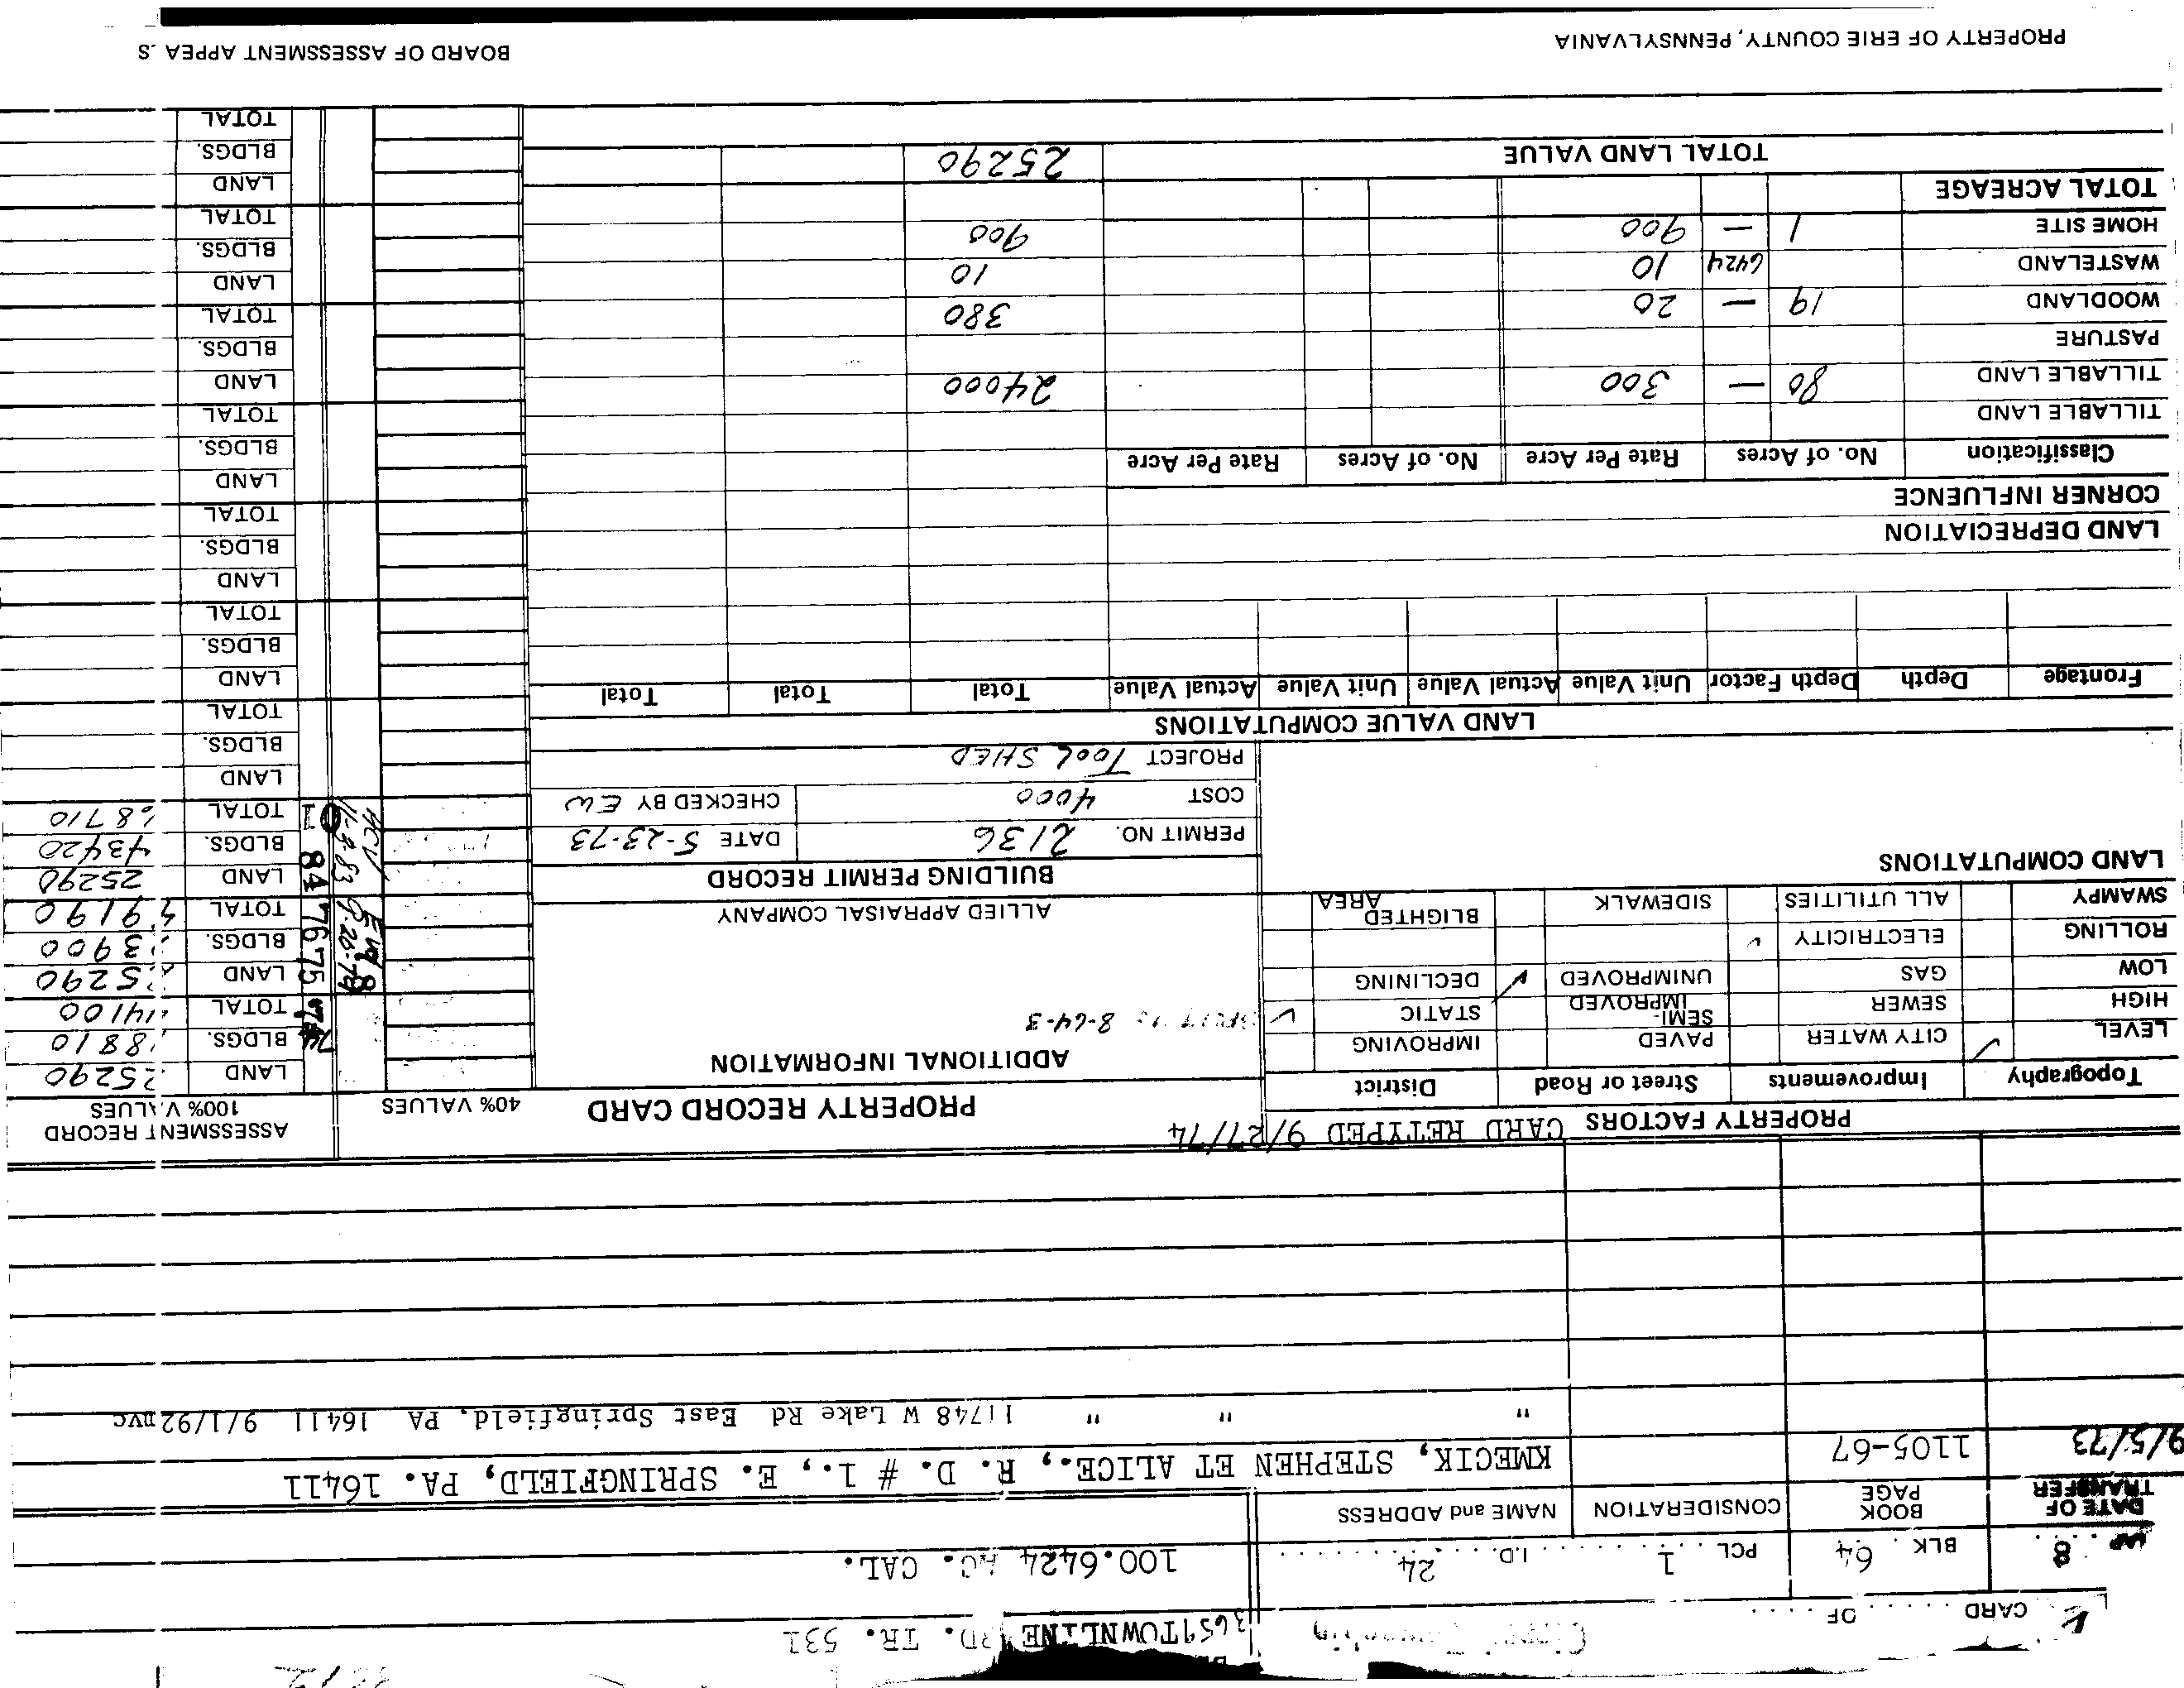 3659 TOWNLINE RD. TR. 531
CARD . . . . . OF . . . .
MAP 8 BLK 64 PCL 1 I.D. 24 100.6424 AC. CAL.
DATE OF TRANSFER BOOK PAGE CONSIDERATION NAME and ADDRESS
9/5/73 1105-67 KMECIK, STEPHEN ET ALICE., R. D. # 1., E. SPRINGFIELD, PA. 16411
" " " 11748 W Lake Rd East Springfield, PA 16411 9/1/92
PROPERTY FACTORS CARD RETYPED 9/27/74
PROPERTY RECORD CARD 40% VALUES ASSESSMENT RECORD 100% VALUES
Topography Improvements Street or Road District
ADDITIONAL INFORMATION
LEVEL ✓ CITY WATER PAVED IMPROVING
HIGH SEWER SEMI-IMPROVED STATIC ✓ 8-64-3
LOW GAS UNIMPROVED ✓ DECLINING
ROLLING ELECTRICITY ✓ BLIGHTED AREA
SWAMPY ALL UTILITIES SIDEWALK
ALLIED APPRAISAL COMPANY
74 LAND 25290
BLDGS. 18810
TOTAL 44100
75 76 LAND 25290
BLDGS. 23900
TOTAL 49190
84 LAND 25290
BLDGS. 43420
TOTAL 68710
5-20-74
HCV 11-9-83
LAND COMPUTATIONS
BUILDING PERMIT RECORD
PERMIT NO. 2136 DATE 5-23-73
COST 4000 CHECKED BY EW
PROJECT TOOL SHED
LAND VALUE COMPUTATIONS
Frontage Depth Depth Factor Unit Value Actual Value Unit Value Actual Value Total Total Total
LAND
BLDGS.
TOTAL
LAND
BLDGS.
TOTAL
LAND
BLDGS.
TOTAL
LAND
BLDGS.
TOTAL
LAND
BLDGS.
TOTAL
LAND
BLDGS.
TOTAL
LAND
BLDGS.
TOTAL
LAND DEPRECIATION
CORNER INFLUENCE
Classification No. of Acres Rate Per Acre No. of Acres Rate Per Acre
TILLABLE LAND
TILLABLE LAND 80 — 300 24000
PASTURE
WOODLAND 19 — 20 380
WASTELAND 6424 10 10
HOME SITE 1 — 900 900
TOTAL ACREAGE
TOTAL LAND VALUE 25290
PROPERTY OF ERIE COUNTY, PENNSYLVANIA BOARD OF ASSESSMENT APPEALS